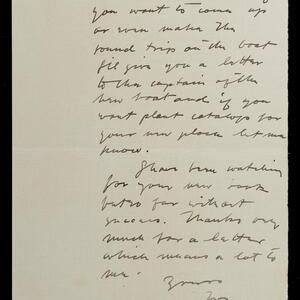 you want to come up
or even make the
round trip on the boat
I'll give you a letter
to the captain of the
new boat and if you
want plant catalogs for
your new place let me
know.
I have been watching
for your new book
but so far without
success. Thanks very
much for a letter
which means a lot to
me.
Yours